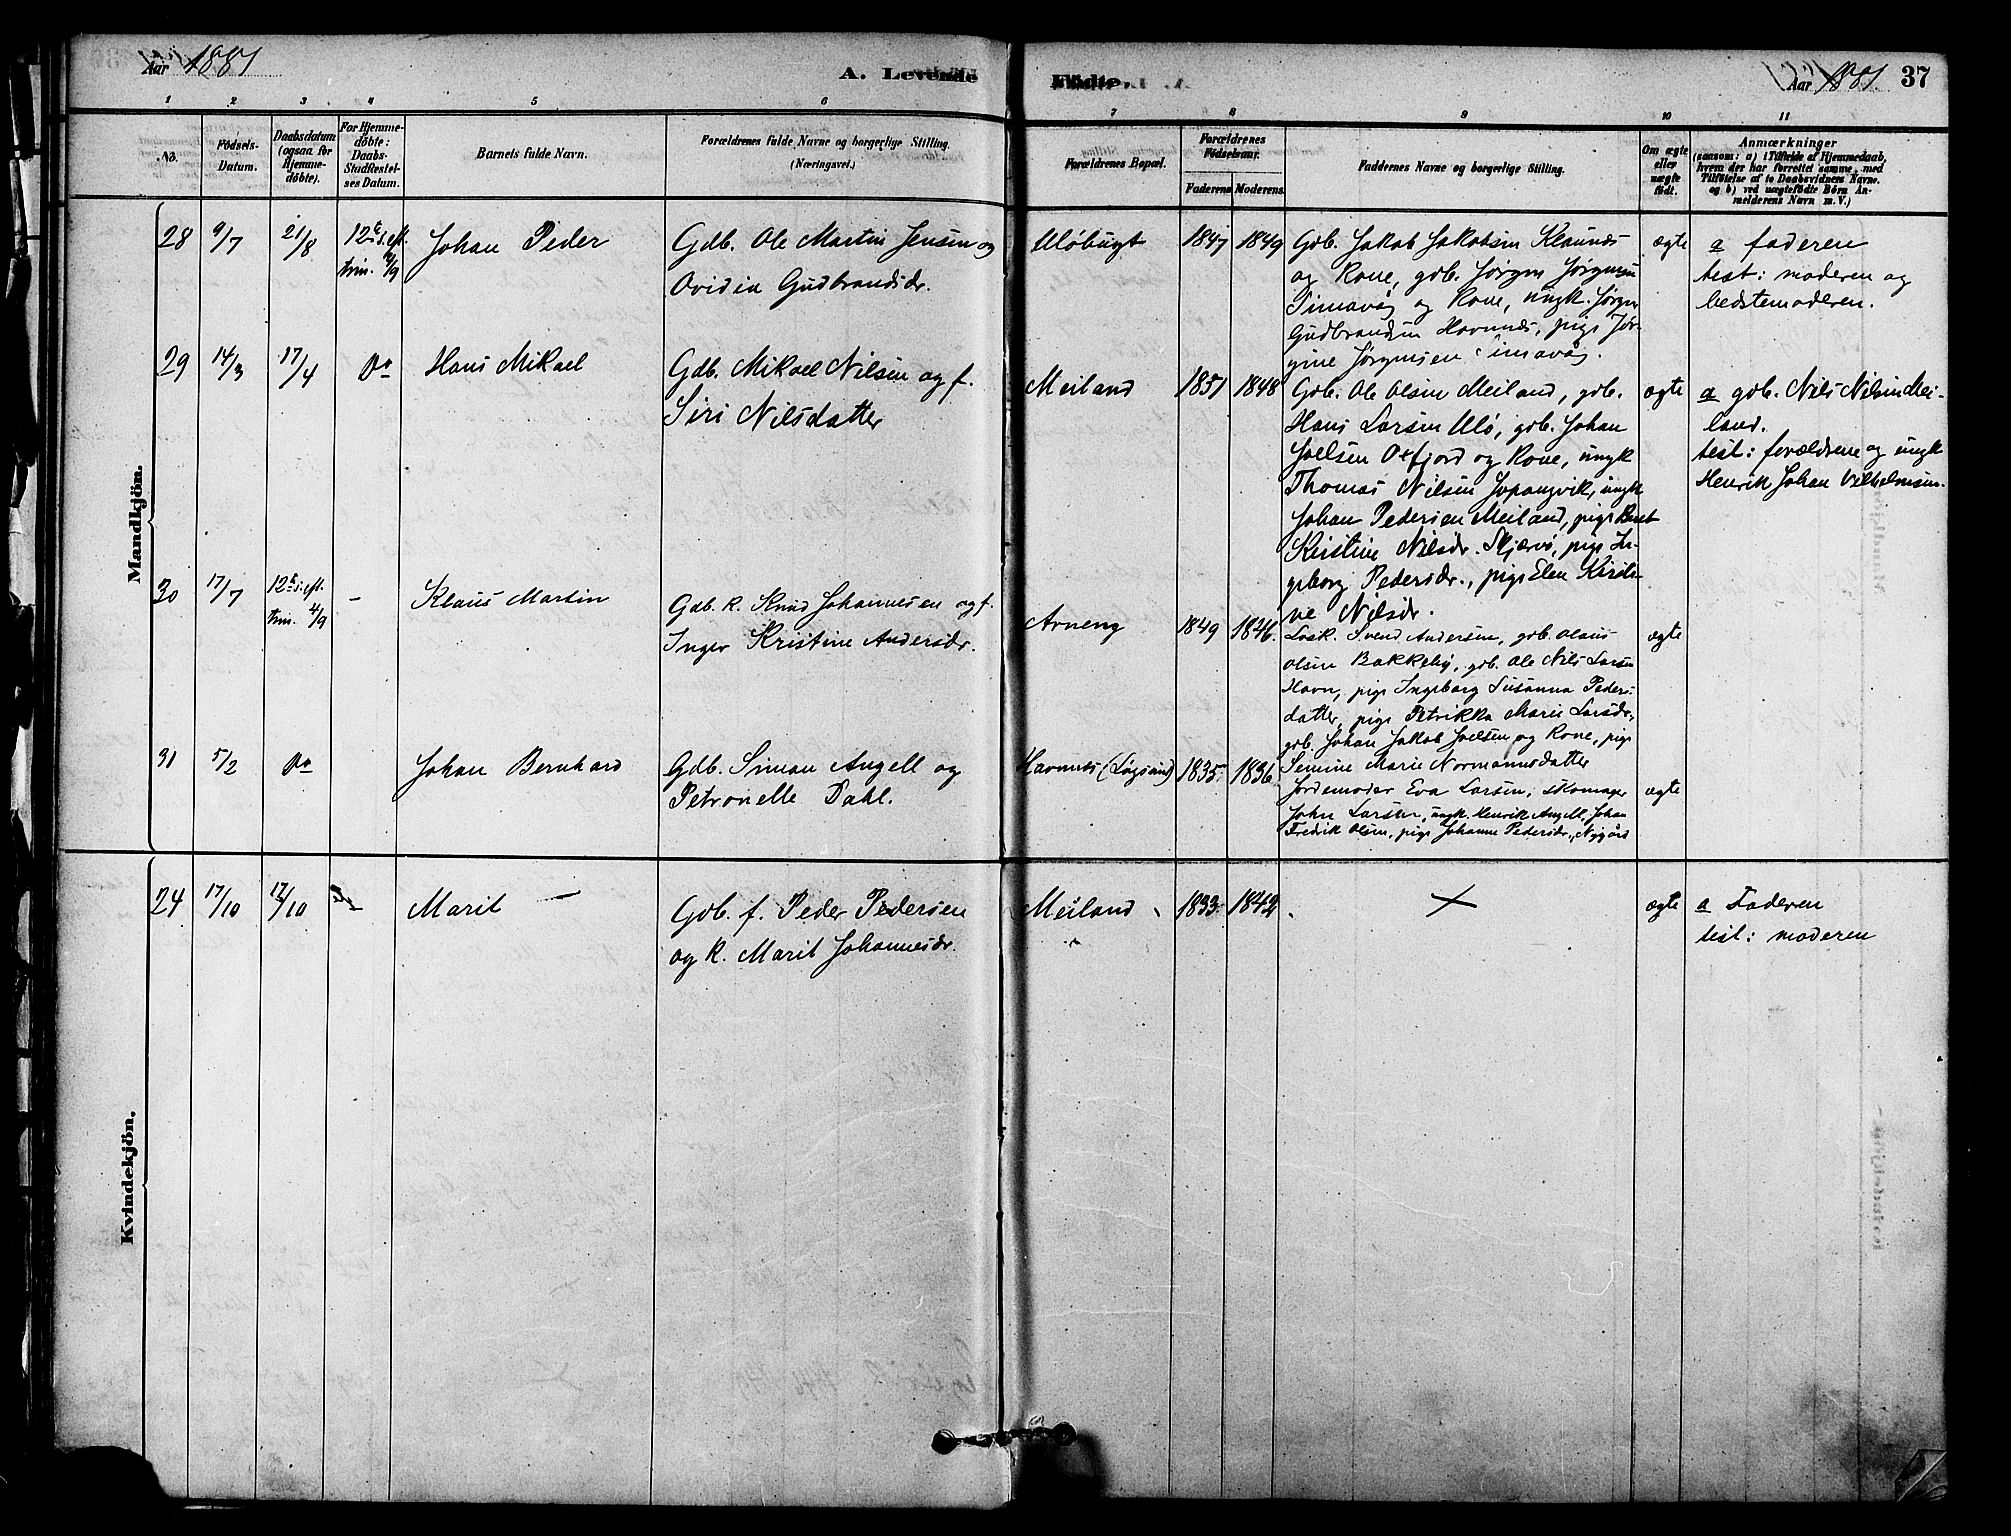 Aar 1881
A. Levende
Fødte.
Aar 1881. 37
1 2 3 4 5 6 7 8 9 10 11
No.
Fødsels-
Datum.
Daabsdatum
(ogsaa for
Hjemme-
døbte).
For Hjemme-
døbte:
Daabs-
Stadfæstel-
ses Datum.
Barnets fulde Navn.
Forældrenes fulde Navne og borgerlige Stilling.
(Næringsvei.)
Forældrenes Bopæl.
Forældrenes
Fødselsaar.
Faderens Moderens
Faddernes Navne og borgerlige Stilling.
Om ægte
eller
uægte
født.
Anmærkninger
(saasom: a) i Tilfælde af Hjemmedaab,
hvem der har forrettet samme, med
Tilføielse af to Daabsvidners Navne.
og b) ved uægtefødte Børn An-
melderens Navn m.V.)
Mandkjön.
28 9/7 21/8 12te s. eft.
trin. 4/9
Johan Peder
Gdb. Ole Martin Jensen og
Ovidia Gudbrandsdr.
Uløbugt 1847 1849
Gdb. Jakob Jakobsen
og Kone, gdb. Jørgen Jørgensen
og Kone, ungk. Jørgen
Gudbrandsen Havnnes, pige Jør-
gine Jørgensen
ægte
a faderen
test: moderen og
bedstemoderen.
29 14/3 17/4 Do
Hans Mikael
Gdb. Mikael Nilsen og f.
Siri Nilsdatter
Meiland 1851 1848
Gdb. Ole Olsen Meiland, gdb.
Hans Larsen Ulø, gdb. Johan
Joelsen Oxfjord og Kone, ungk
Thomas Nilsen Spaagvik, ungk
Johan Pedersen Meiland, pige Beret
Kirstine Nilsdr. Skjærvø, pige In-
geborg Pedersdr., pige Elen Kirsti-
ne Nilsdr.
ægte
a gdb. Nils Nilsen Mei-
land.
test: forældrene og ungk
Henrik Johan Vilhelmsen.
30 17/7 12te s. eft.
trin. 4/9 –
Klaus Martin
Gdb. k. Knud Johannesen og f.
Inger Kristine Andersdr.
Arneng 1849 1846.
Losk. Svend Andersen, gdb. Olaus
Olsen Bakkeby, gdb. Ole Nils Larsen
Havn, pige Ingeborg Susanna Peders-
datter, pige Petrikka Marie Larsdr.,
gdb. Johan Jakob Joelsen og Kone, pige
Semine Marie Normannsdatter
ægte
31 5/2 Do
Johan Bernhard
Gdb. Simon Angell og
Petronelle Dahl.
Havnnes (Løgsund) 1835. 1836
Jordemoder Eva Larsen, skomager
John Larsen, ungk. Henrik Angell, Johan
Fredrik Olsen, pige Johanne Pedersdr., Nygård
ægte
Kvindekjön.
24 17/10 17/10
Marit –
Gdb. f. Peder Pedersen
og k. Marit Johannesdr.
Meiland 1833. 1842
×
ægte
a Faderen
test: moderen